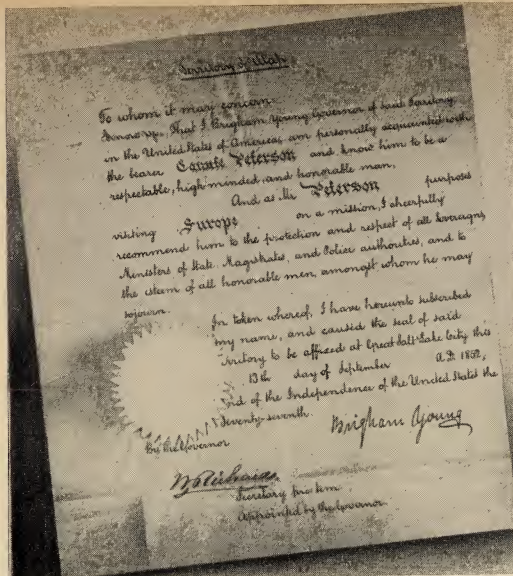 Territory of Utah
To whom it may concern:
Know ye, That I Brigham Young Governor of said Territory
in the United States of America, am personally acquainted with
the bearer Canute Peterson and know him to be a
respectable, high minded, and honorable man,
And as Mr Peterson purposes
visiting Europe on a mission, I cheerfully
recommend him to the protection and respect of all Sovereigns,
Ministers of State, Magistrates, and Police authorities, and to
the esteem of all honorable men, amongst whom he may
sojourn.
In token whereof, I have hereunto subscribed
my name, and caused the seal of said
Territory to be affixed at Great Salt Lake City this
13th day of September A.D. 1852,
and of the Independence of the United States the
Seventy-seventh.
By the Governor
Brigham Young
Secretary pro tem
Appointed by the Governor